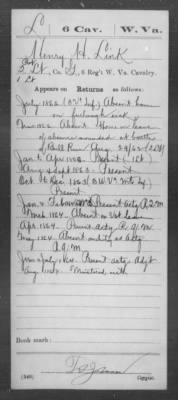 L 6 Cav. W. Va.
Henry H. Link
2 Lt., Co. G, 6 Reg't W. Va. Cavalry.
1 Lt
Appears on Returns as follows:
July 1862 Absent home
on furlough sick
Nov 1862 Absent. Home on leave
of absence wounded at battle
of Bull Run Aug. 29/62 (2 Lt)
Jan to Apr 1863 Present (1 Lt)
Aug & Sept 1863 Present
Oct to Dec 1863
Present
Jan & Feb Present actg A.Q.M
Mch 1864 Absent on Vet leave
Apr. 1864. Present actg R.Q.M
May 1864 Absent on duty as actg
A.Q.M.
June & July 1864. Present actg Adjt
Aug 1864. Mustered out
Book mark:
(546) Copyist.